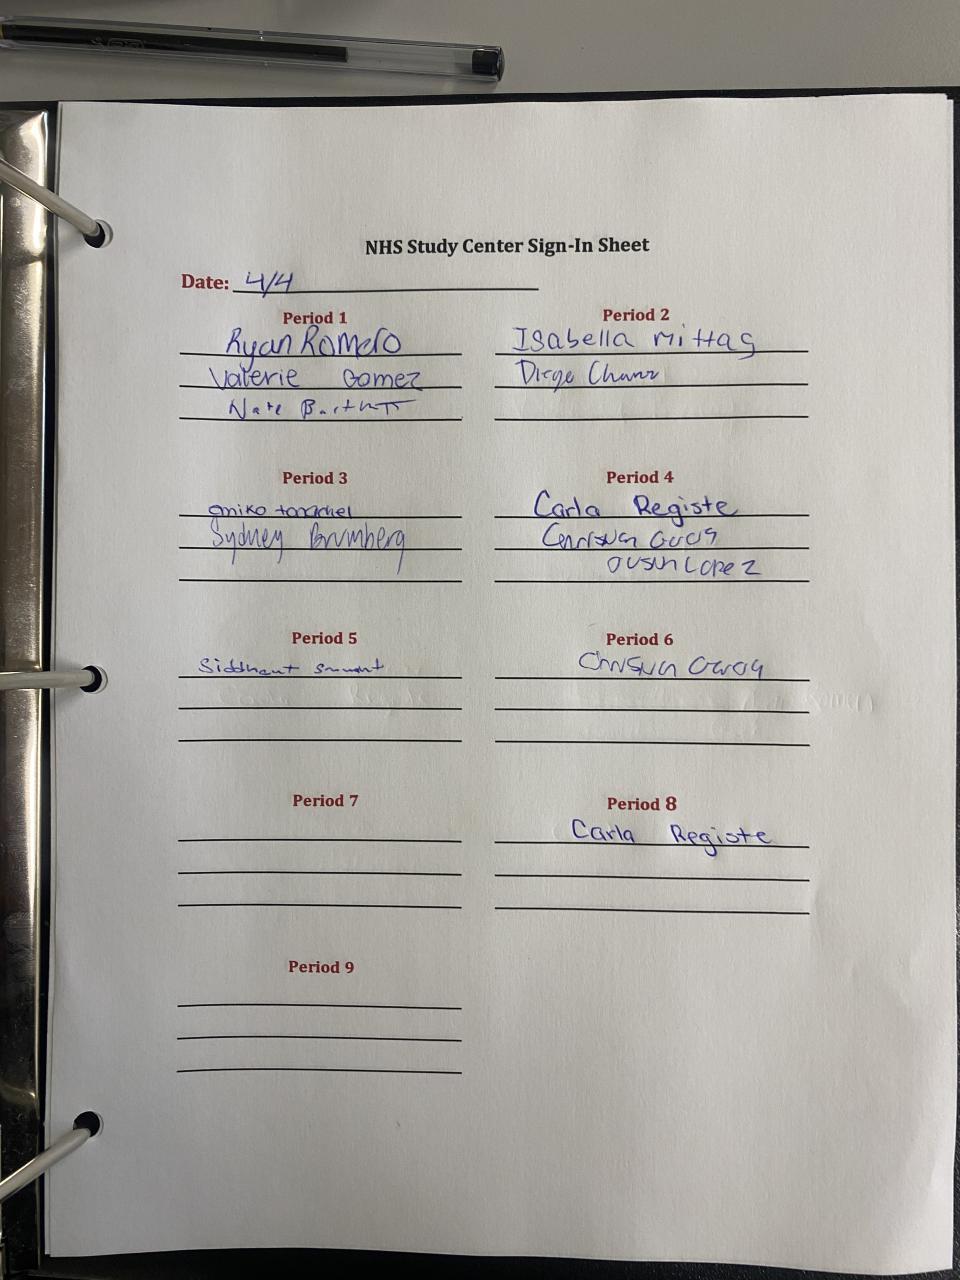 NHS Study Center Sign-In Sheet
Date: 4/4
Period 1
Ryan Romero
Valerie Gomez
Nate
Period 2
Isabella Mittag
Diego
Period 3
Sydney Brumberg
Period 4
Carla Registe
Lopez
Period 5
Siddhant
Period 6
Period 7
Period 8
Carla Registe
Period 9